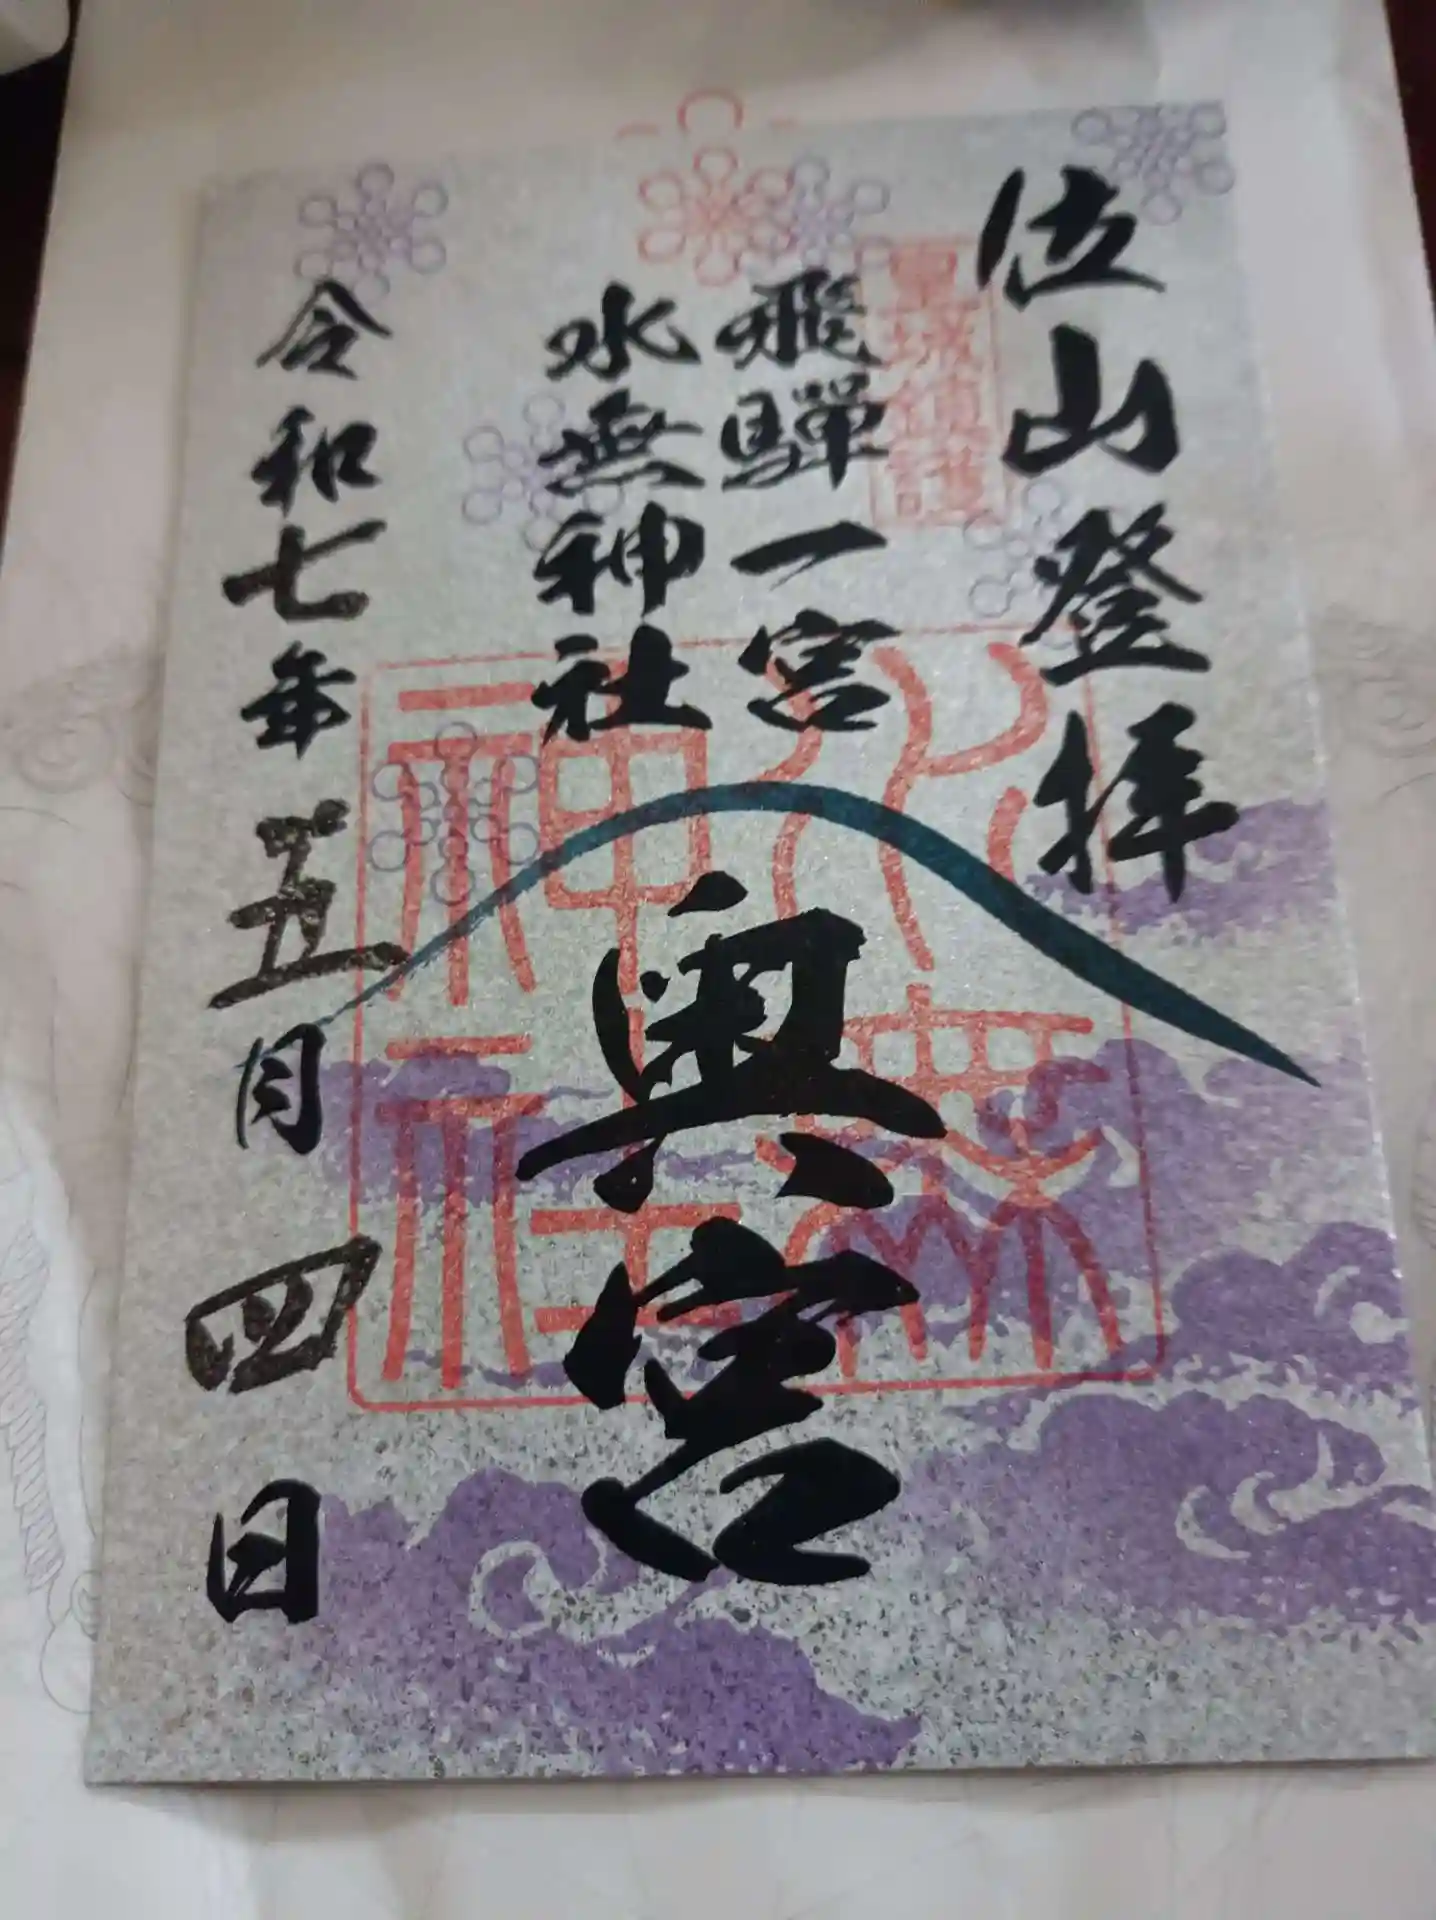 位山登拝
皇城鎮護
飛騨一宮
水無神社
奥宮
水無神社
令和七年五月四日